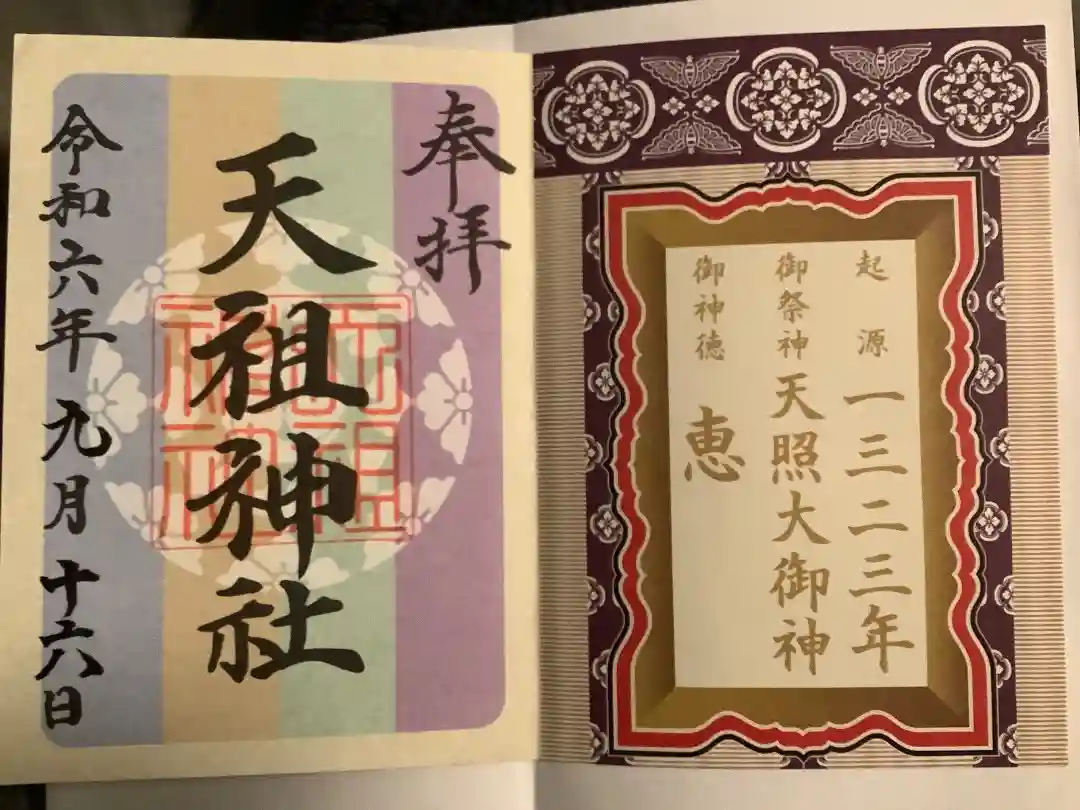 起源 一三二三年
御祭神 天照大御神
御神徳 恵
奉拝
天祖神社
令和六年九月十六日